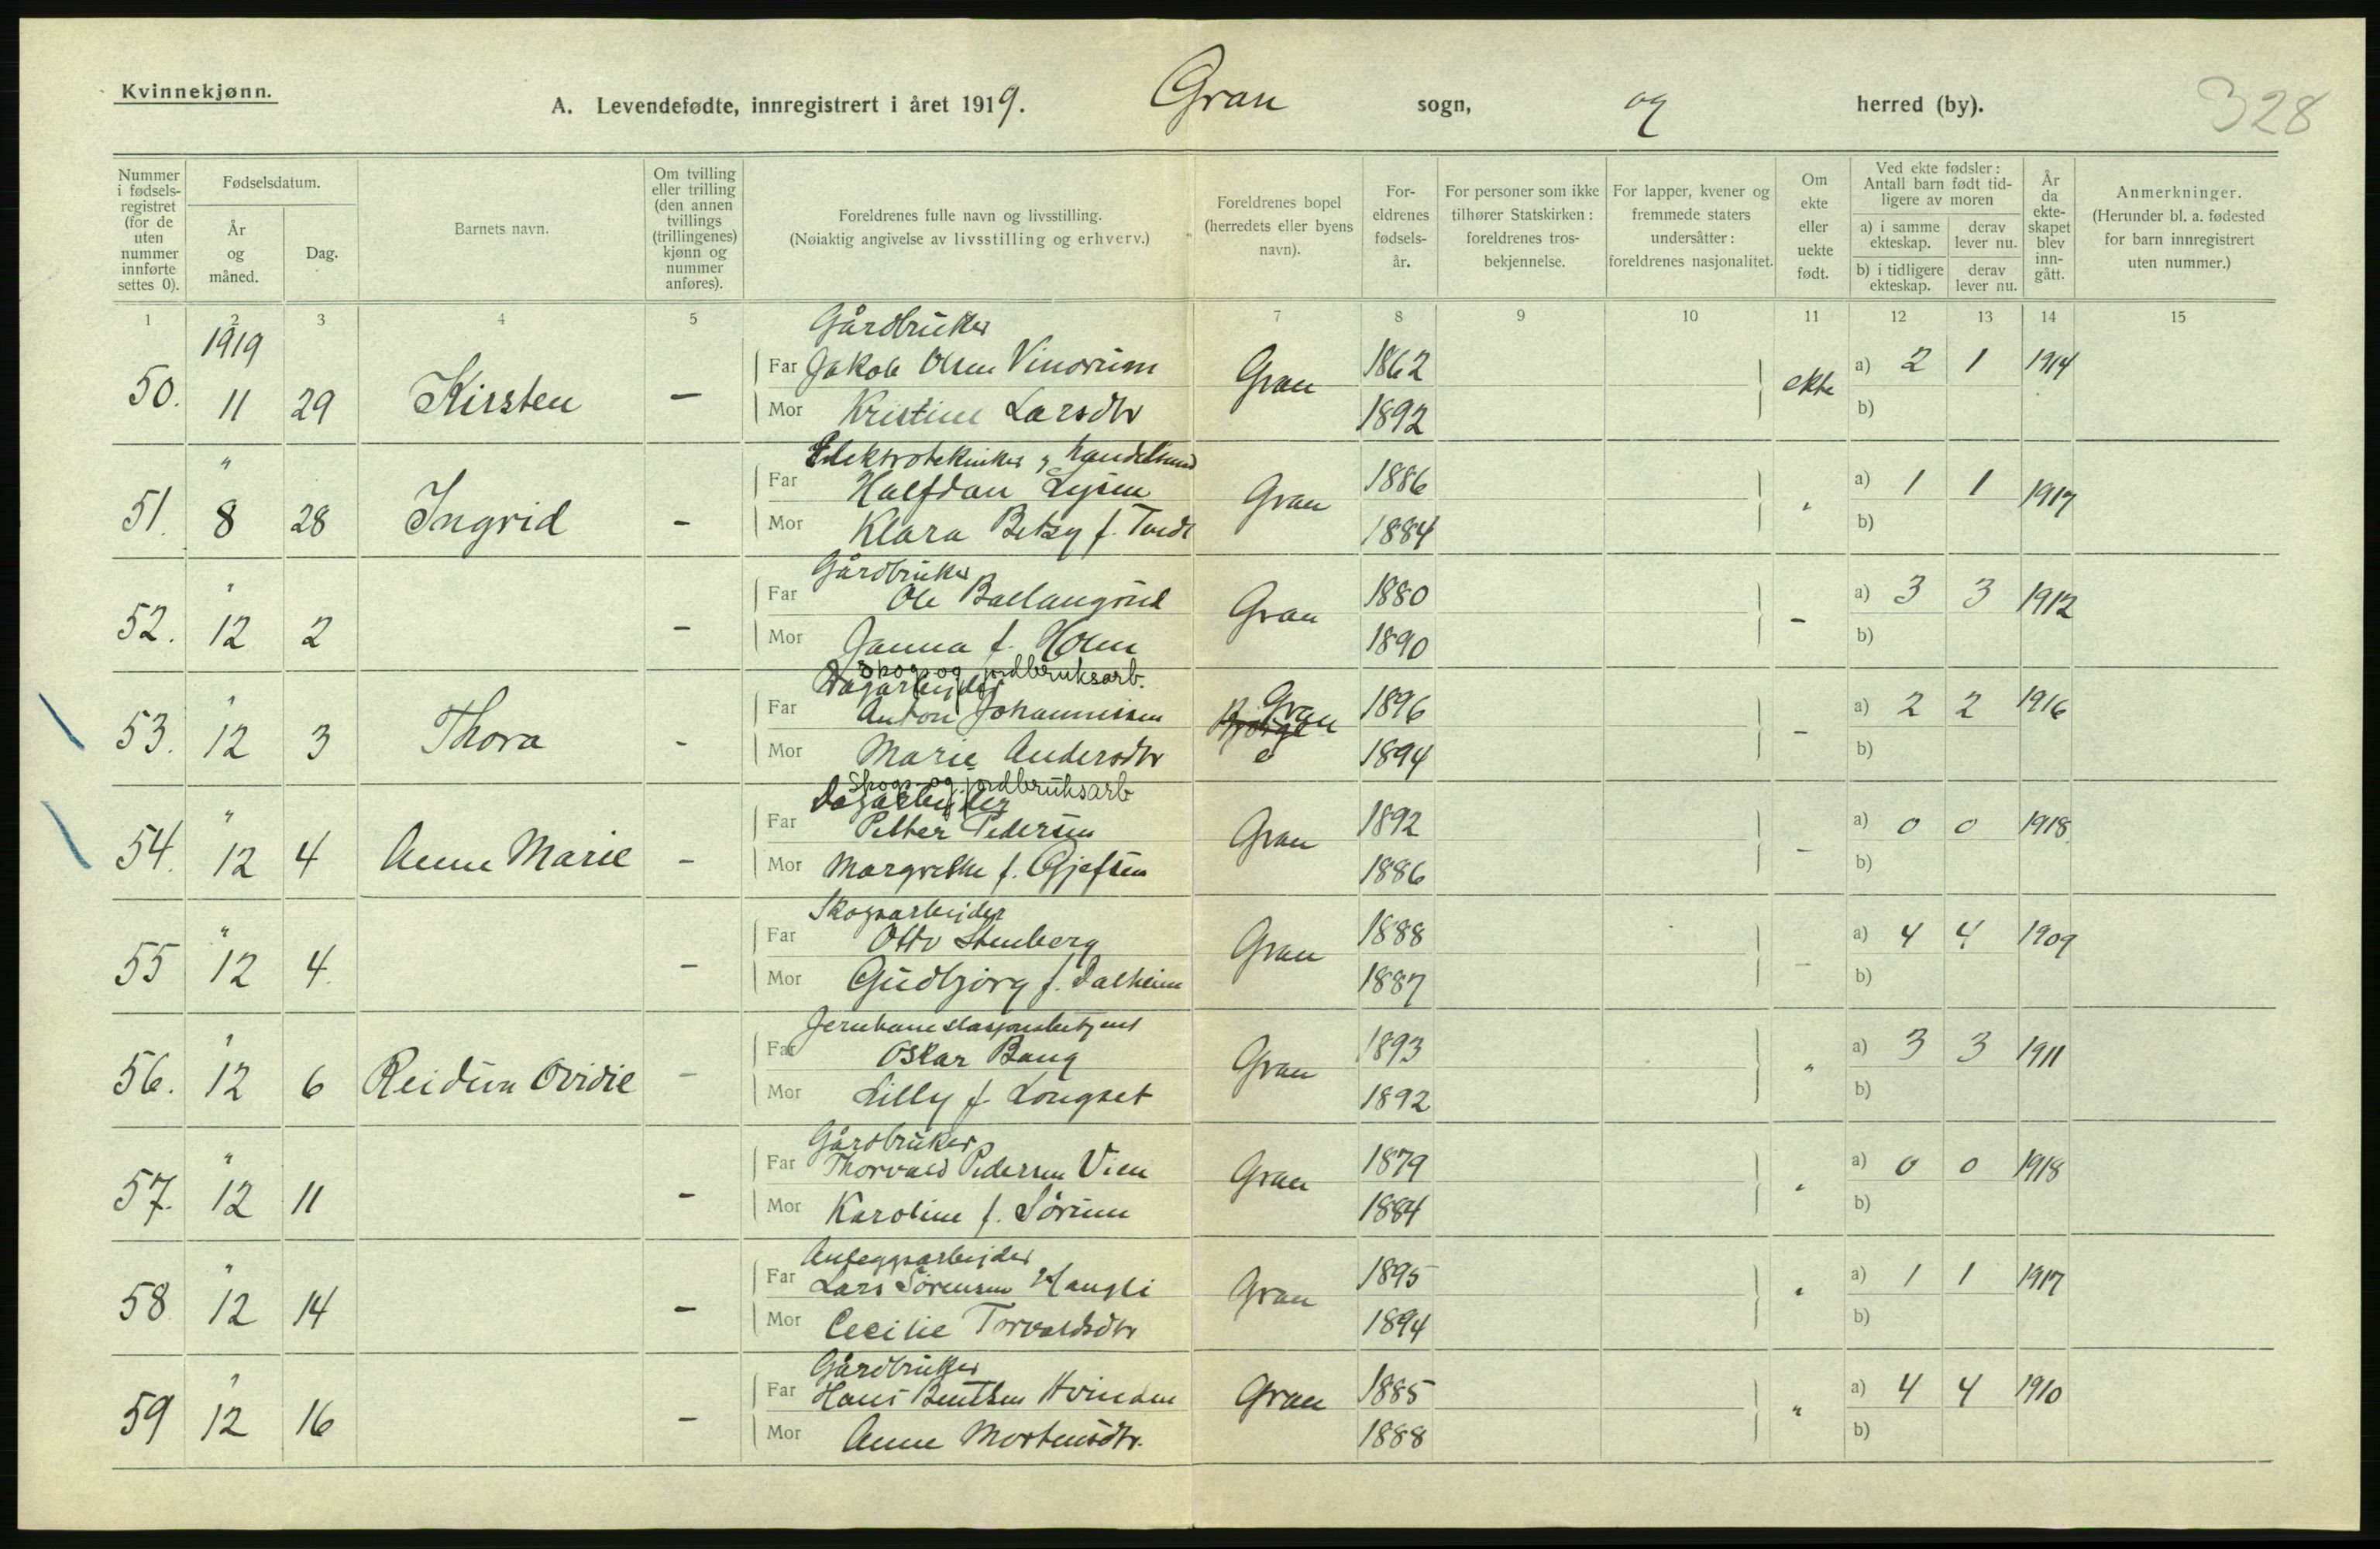 Kvinnekjønn.
A. Levendefødte, innregistrert i året 1919. Gran sogn, og herred (by). 328
Nummer i fødsels-registret (for de uten nummer innførte settes 0).
Fødselsdatum.
År og måned.
Dag.
Barnets navn.
Om tvilling eller trilling (den annen tvillings (trillingenes) kjønn og nummer anføres).
Foreldrenes fulle navn og livsstilling.
(Nøiaktig angivelse av livsstilling og erhverv.)
Foreldrenes bopel (herredets eller byens navn).
For-eldrenes fødsels-år.
For personer som ikke tilhører Statskirken: foreldrenes tros-bekjennelse.
For lapper, kvener og fremmede staters undersåtter: foreldrenes nasjonalitet.
Om ekte eller uekte født.
Ved ekte fødsler: Antall barn født tid-ligere av moren
a) i samme ekteskap.
derav lever nu.
b) i tidligere ekteskap.
derav lever nu.
År da ekte-skapet blev inn-gått.
Anmerkninger.
(Herunder bl. a. fødested for barn innregistrert uten nummer.)
1 2 3 4 5 7 8 9 10 11 12 13 14 15
1919 Gårdbruker
Far Jakob Olsen Vinorum 1862 a) 2 1 1914
50. 11 29 Kirsten — Gran ekte
Mor Kristine Larsdtr 1892 b)
Elektrotekniker og handelsmand
" Far Halfdan Lysen 1886 a) 1 1 1917
51. 8 28 Ingrid - Gran "
Mor Klara Betzy f. 1884 b)
Gårdbruker
" Far Ole Ballangrud 1880 a) 3 3 1912
52. 12 2 - Gran -
Mor Janna f. Horn 1890 b)
Skogs- og jordbruksarb.
Dagarbeider
" Far Anton Johannessen Gran 1896 a) 2 2 1916
53. 12 3 Thora - -
Mor Marie Andersdtr 1894 b)
Skogs- og jordbruksarb
Dagarbeider
" Far Petter Pedersen 1892 a) 0 0 1918
54. 12 4 Anne Marie - Gran -
Mor Margrethe f. Gjefsen 1886 b)
Skogsarbeider
" Far Otto Stenberg 1888 a) 4 4 1909
55 12 4. - Gran -
Mor Gudbjørg f. Dalheim 1887 b)
Jernbanestasjonsbetjent
" Far Oskar Bang 1893 a) 3 3 1911
56. 12 6 Reidun Ovidie - Gran "
Mor Lilly f. Longset 1892 b)
Gårdbruker
" Far Thorvald Pedersen Vien 1879 a) 0 0 1918
57. 12 11 - Gran "
Mor Karoline f. Sørum 1884 b)
Anleggsarbeider
" Far Lars Sørensen Haugli 1895 a) 1 1 1917
58 12 14 - Gran "
Mor Cecilie Torvaldsdtr 1894 b)
Gårdbruker
" Far Hans Bentsen Hvinden 1885 a) 4 4 1910
59 12 16 - Gran "
Mor Anne Mortensdtr. 1888 b)